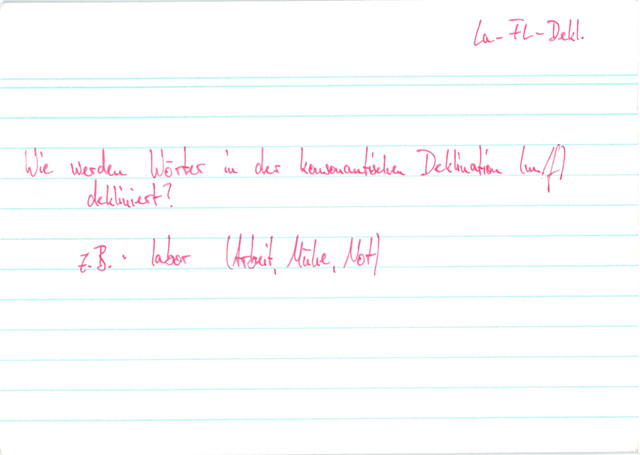 La-FL-Dekl.
Wie werden Wörter in der konsonantischen Deklination (m/f)
dekliniert?
z.B.: labor (Arbeit, Mühe, Not)